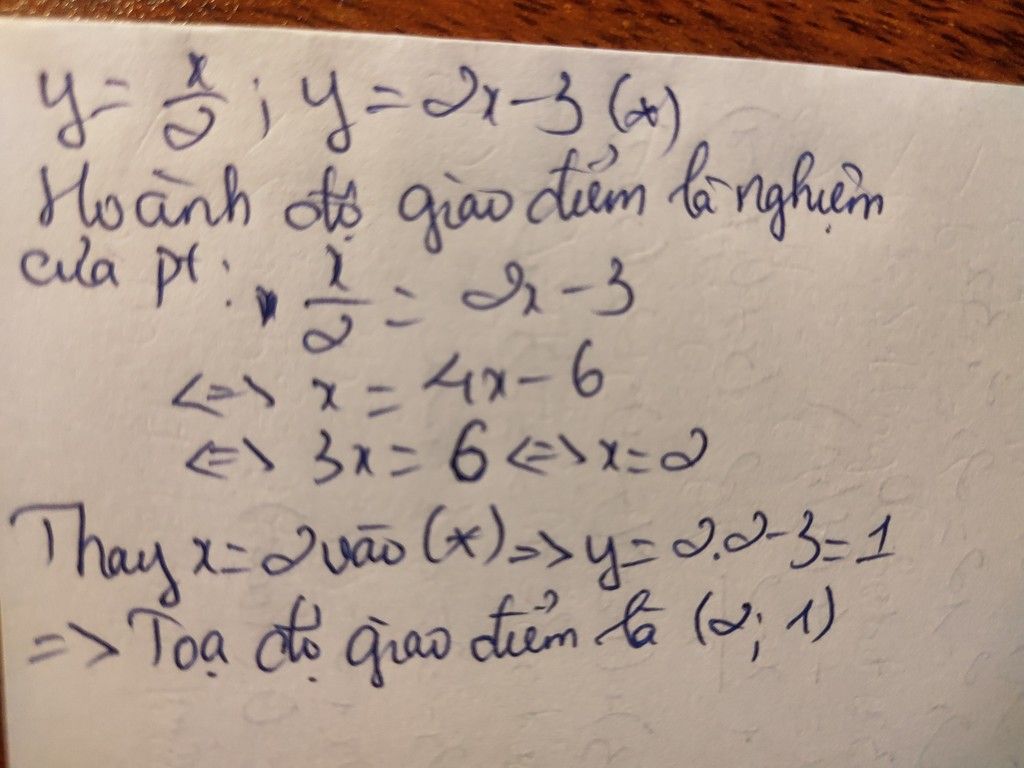 y = x/2 ; y = 2x - 3 (*)
Hoành độ giao điểm là nghiệm
của pt : x/2 = 2x - 3
<=> x = 4x - 6
<=> 3x = 6 <=> x = 2
Thay x = 2 vào (*) => y = 2.2 - 3 = 1
=> Toạ độ giao điểm là (2; 1)